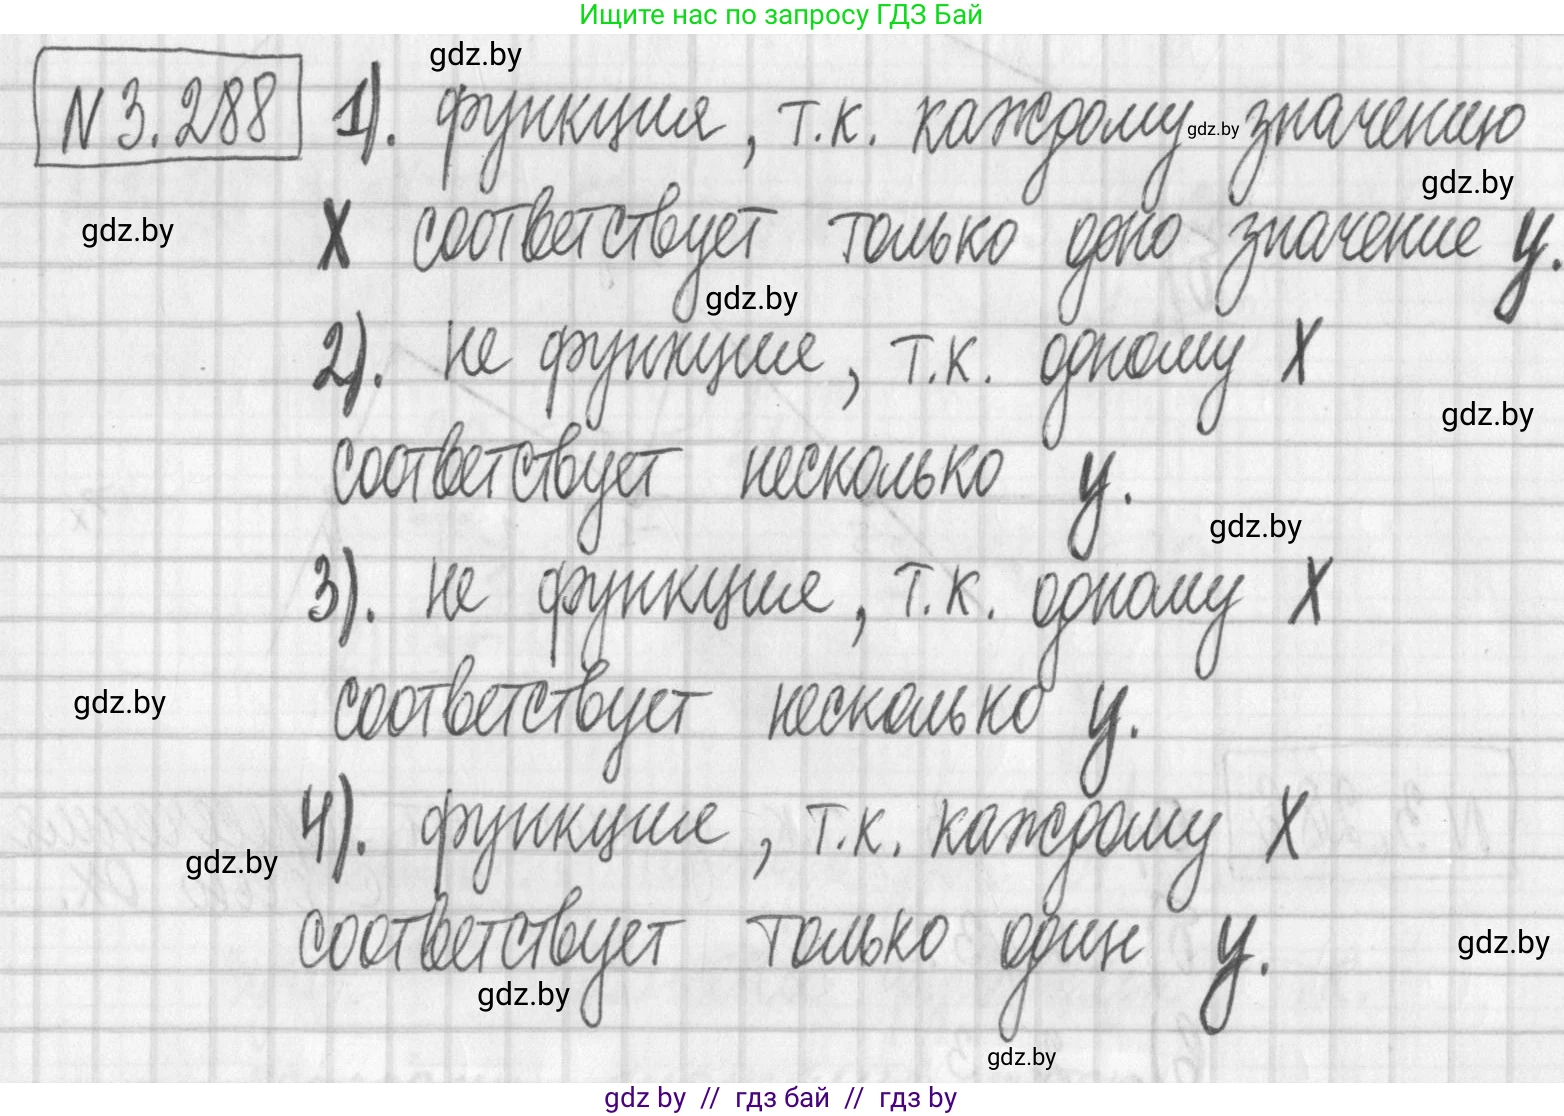 Ищите нас по запросу ГДЗ Бай
gdz.by
N 3.288 1). функция, т.к. каждому gdz.by значению
gdz.by
gdz.by
х соответствует только одно значение у.
gdz.by
2). не функция, т.к. одному х
gdz.by
соответствует несколько у.
gdz.by
3). не функция, т.к. одному х
соответствует несколько у.
gdz.by
4). функция, т.к. каждому х
gdz.by
соответствует только один у.
gdz.by
gdz.by
gdz.by
gdz by // гдз бай // гдз by